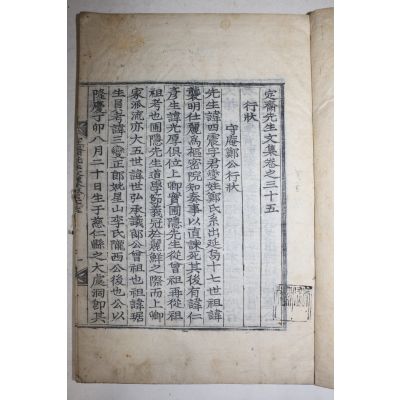 定齋先生文集卷之三十五
行狀
守庵鄭公行狀
先生諱四震字君燮姓鄭氏系出延烏十七世祖諱
襲明仕麗爲樞密院知奏事以直諫死其後有諱仁
彦生諱光厚俱位上卿實圃隱先生從曾祖再從祖
祖考也圃隱先生道學節義冠於麗鮮之際而上卿
家派流亦大五世諱世弘承議郞公曾祖也祖諱琚
生員考諱三變正郞妣星山李氏隴西公後也公以
隆慶丁卯八月二十日生于慈仁縣之大處洞卽其